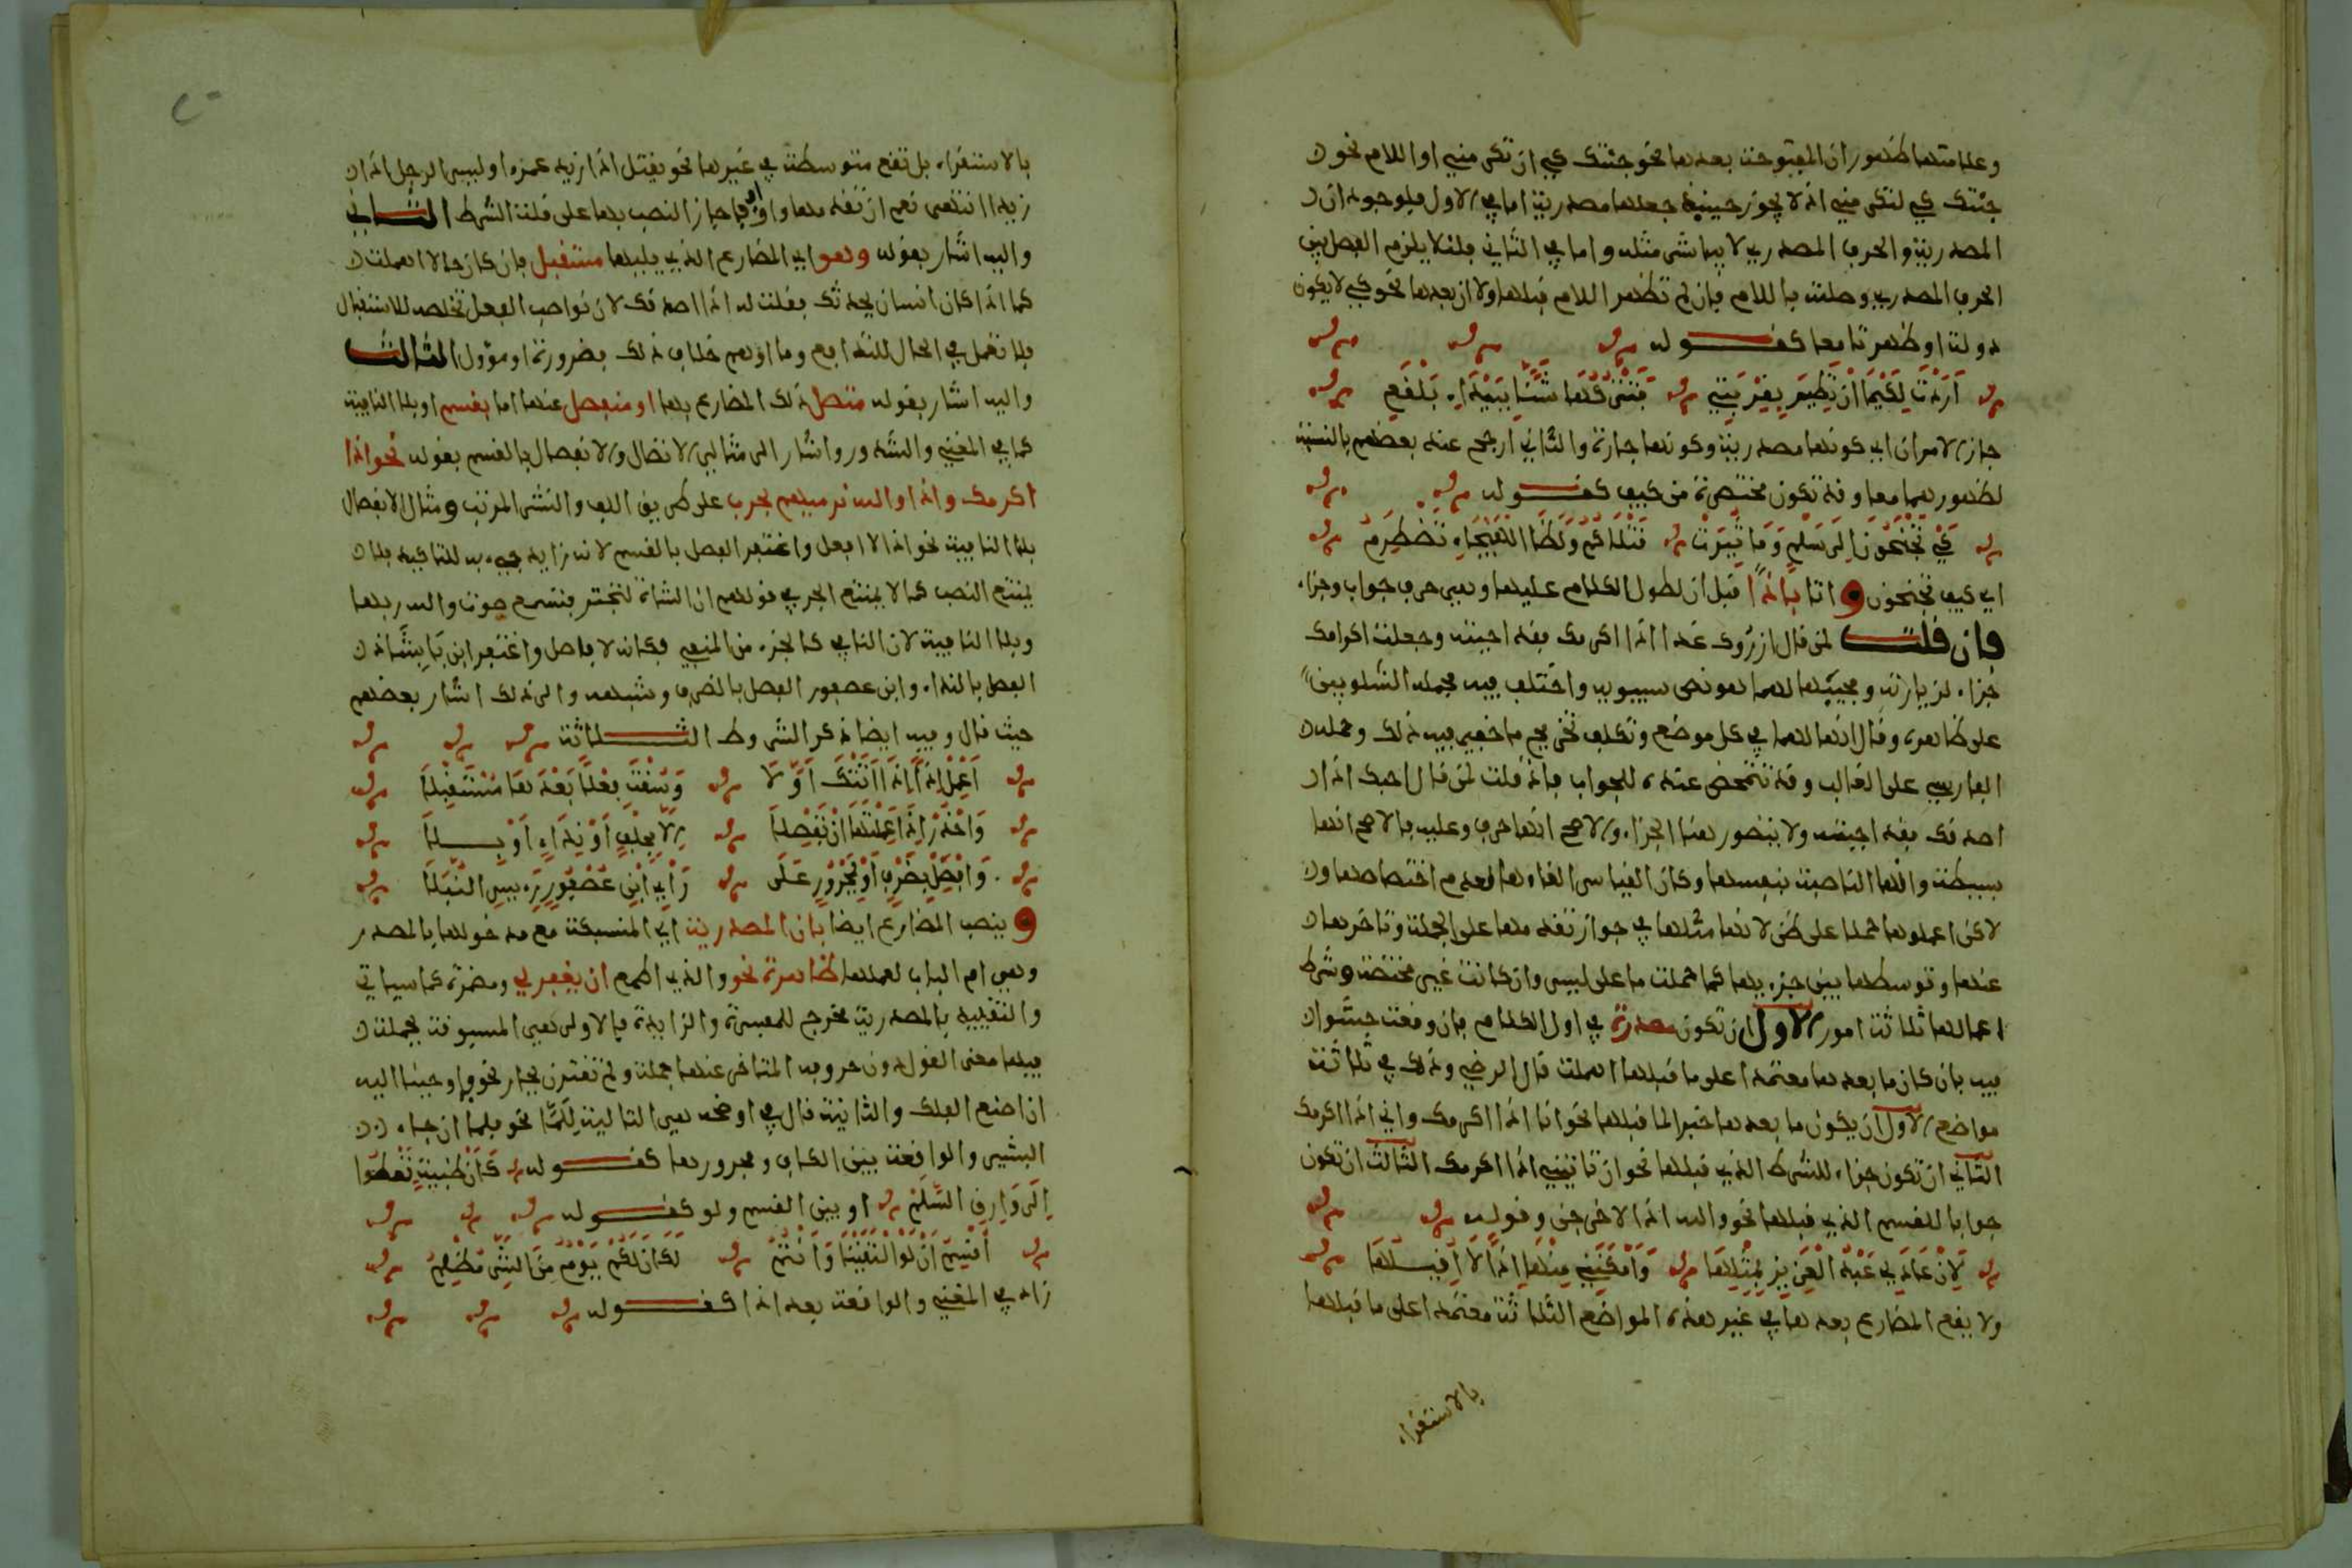 وعلامتها ظهور ان المفتوحة بعدها نحو جئتك كي ان تكرمني او اللام نحو
جئتك كي لتكرمني اذ لا يجوز حينئذ جعلها مصدرية اما في الاول فلوجود ان
المصدرية والحرف المصدري لا يباشر مثله واما في الثاني فلئلا يلزم الفصل بين
الحرف المصدري وصلته باللام فان لم تظهر اللام قبلها ولا ان بعدها نحو كي لا يكون
دولة او ظهرتا معا كقوله
اَرَدْتَ لِكَيْمَا اَنْ تَطِيرَ بِقِرْبَتِي فَتَتْرُكَهَا شَنًّا بِبَيْدَاءَ بَلْقَعِ
جاز الامران اي كونها مصدرية وكونها جارة والثاني ارجح عند بعضهم بالنسبة
لظهورهما معا وقد تكون مختصرة من كيف كقوله
كَيْ تَجْنَحُونَ اِلَى سَلْمٍ وَمَا ثُئِرَتْ قَتْلَاكُمُ وَلَظَى الهَيْجَاءِ تَضْطَرِمُ
اي كيف تجنحون و اتا باذًا قبل ان لطول الكلام عليها وهي حرف جواب وجزاء
فان قلت لمن قال ازورك غدا اذا اكرمك فقد اجبته وجعلت اكرامك
جزاء لزيارته ومجيئها لهما هو نص سيبويه واختلف فيه فحمله الشلوبين
على ظاهره وقال انها لهما في كل موضع وتكلف تخريج ما خفي فيه ذلك وحمله
الفارسي على الغالب وقد تتمحض عنده للجواب فاذا قلت لمن قال احبك اذا
اصدقك فقد اجبته ولا يتصور هنا الجزاء والاصح انها حرف وعليه فالاصح انها
بسيطة وانها الناصبة بنفسها وكان القياس الغاءها لعدم اختصاصها
لاكن اعملوها حملا على ظن لانها مثلها في جواز تقدمها على الجملة وتاخرها
عنها وتوسطها بين جزءيها كما حملت ما على ليس وان كانت غير مختصة وشرط
اعمالها ثلاثة امور الاول ان تكون مصدرة في اول الكلام فان وقعت حشوا
فيه بان كان ما بعدها معتمدا على ما قبلها اهملت قال الرضي وذلك في ثلاثة
مواضع الاول ان يكون ما بعدها خبرا لما قبلها نحو انا اذا اكرمك واني اذا اكرمك
الثاني ان تكون جزاء للشرط الذي قبلها نحو ان تاتيني اذا اكرمك الثالث ان تكون
جوابا للقسم الذي قبلها نحو والله اذا لاخرجن وقوله
لَئِنْ عَادَ لِي عَبْدُ الْعَزِيزِ بِمِثْلِهَا وَاَمْكَنَنِي مِنْهَا اِذًا لَا اُقِيلُهَا
ولا يقع المضارع بعدها في غير هذه المواضع الثلاثة معتمدا على ما قبلها
بالاستقراء
بالاستقراء بل تقع متوسطة في غيرها نحو يقتل اذا زيد عمرو او ليس الرجل اذا
زيدا انتهى نعم ان تقدمها واو او فا جاز النصب بها على قلة الشرط الثاني
واليه اشار بقوله وهو اي المضارع الذي يليها مستقبل فان كان حالا اهملت
كما اذا كان انسان يحدثك فقلت له اذا اصدقك لان نواصب الفعل تخلصه للاستقبال
فلا تعمل في الحال للتدافع وما اوهم خلاف ذلك فضرورة او مؤول الثالث
واليه اشار بقوله متصل ذلك المضارع بها او منفصل عنها اما بقسم او بلا النافية
كما في المغني والشذور واشار الى مثالي الاتصال والانفصال بالقسم بقوله نحو اذا
اكرمك واذا والله نرميهم بحرب على طريق اللف والنشر المرتب ومثال الانفصال
بلا النافية نحو اذا لا افعل واغتفر الفصل بالقسم لانه زايد جيء به للتاكيد فلا
يمتنع النصب كما لا يمتنع الجر في قولهم ان الشاة لتجتر فتسمع صوت والله ربها
وبلا النافية لان النافي كالجزء من المنفي فكانه لا فاصل واغتفر ابن بابشاذ
الفصل بالنداء وابن عصفور الفصل بالظرف وشبهه والى ذلك اشار بعضهم
حيث قال وفيه ايضا ذكر الشروط الثلاثة
اَعْمِلْ اِذًا اِذَا اَتَتْكَ اَوَّلَا وَسُقْتَ فِعْلًا بَعْدَهَا مُسْتَقْبِلَا
وَاحْذَرْ اِذَا اَعْمَلْتَهَا اَنْ تَفْصِلَا اِلَّا بِحَلْفٍ اَوْ نِدَاءٍ اَوْ بِلَا
وَافْصِلْ بِظَرْفٍ اَوْ بِمَجْرُورٍ عَلَى رَأْيِ ابْنِ عُصْفُورٍ رَئِيسِ النُّبَلَا
و ينصب المضارع ايضا بان المصدرية اي المنسبكة مع مدخولها بالمصدر
وهي ام الباب لعملها ظاهرة نحو والذي اطمع ان يغفر لي ومضمرة كما سياتي
والتقييد بالمصدرية مخرج للمفسرة والزايدة فالاولى هي المسبوقة بجملة
فيها معنى القول دون حروفه المتاخر عنها جملة ولم تقترن بجار نحو فاوحينا اليه
ان اصنع الفلك والثانية قال في اوضحه هي التالية لِلَمَّا نحو فلما ان جاء
البشير والواقعة بين الكاف ومجرورها كقوله كَاَنْ ظَبْيَةٍ تَعْطُوا
اِلَى وَارِقِ السَّلَمْ او بين القسم ولو كقوله
اُقْسِمُ اَنْ لَوِ الْتَقَيْنَا وَاَنْتُمُ لَكَانَ لَكُمْ يَوْمٌ مِنَ الشَّرِّ مُظْلِمُ
زاد في المغني والواقعة بعد اذا كقوله